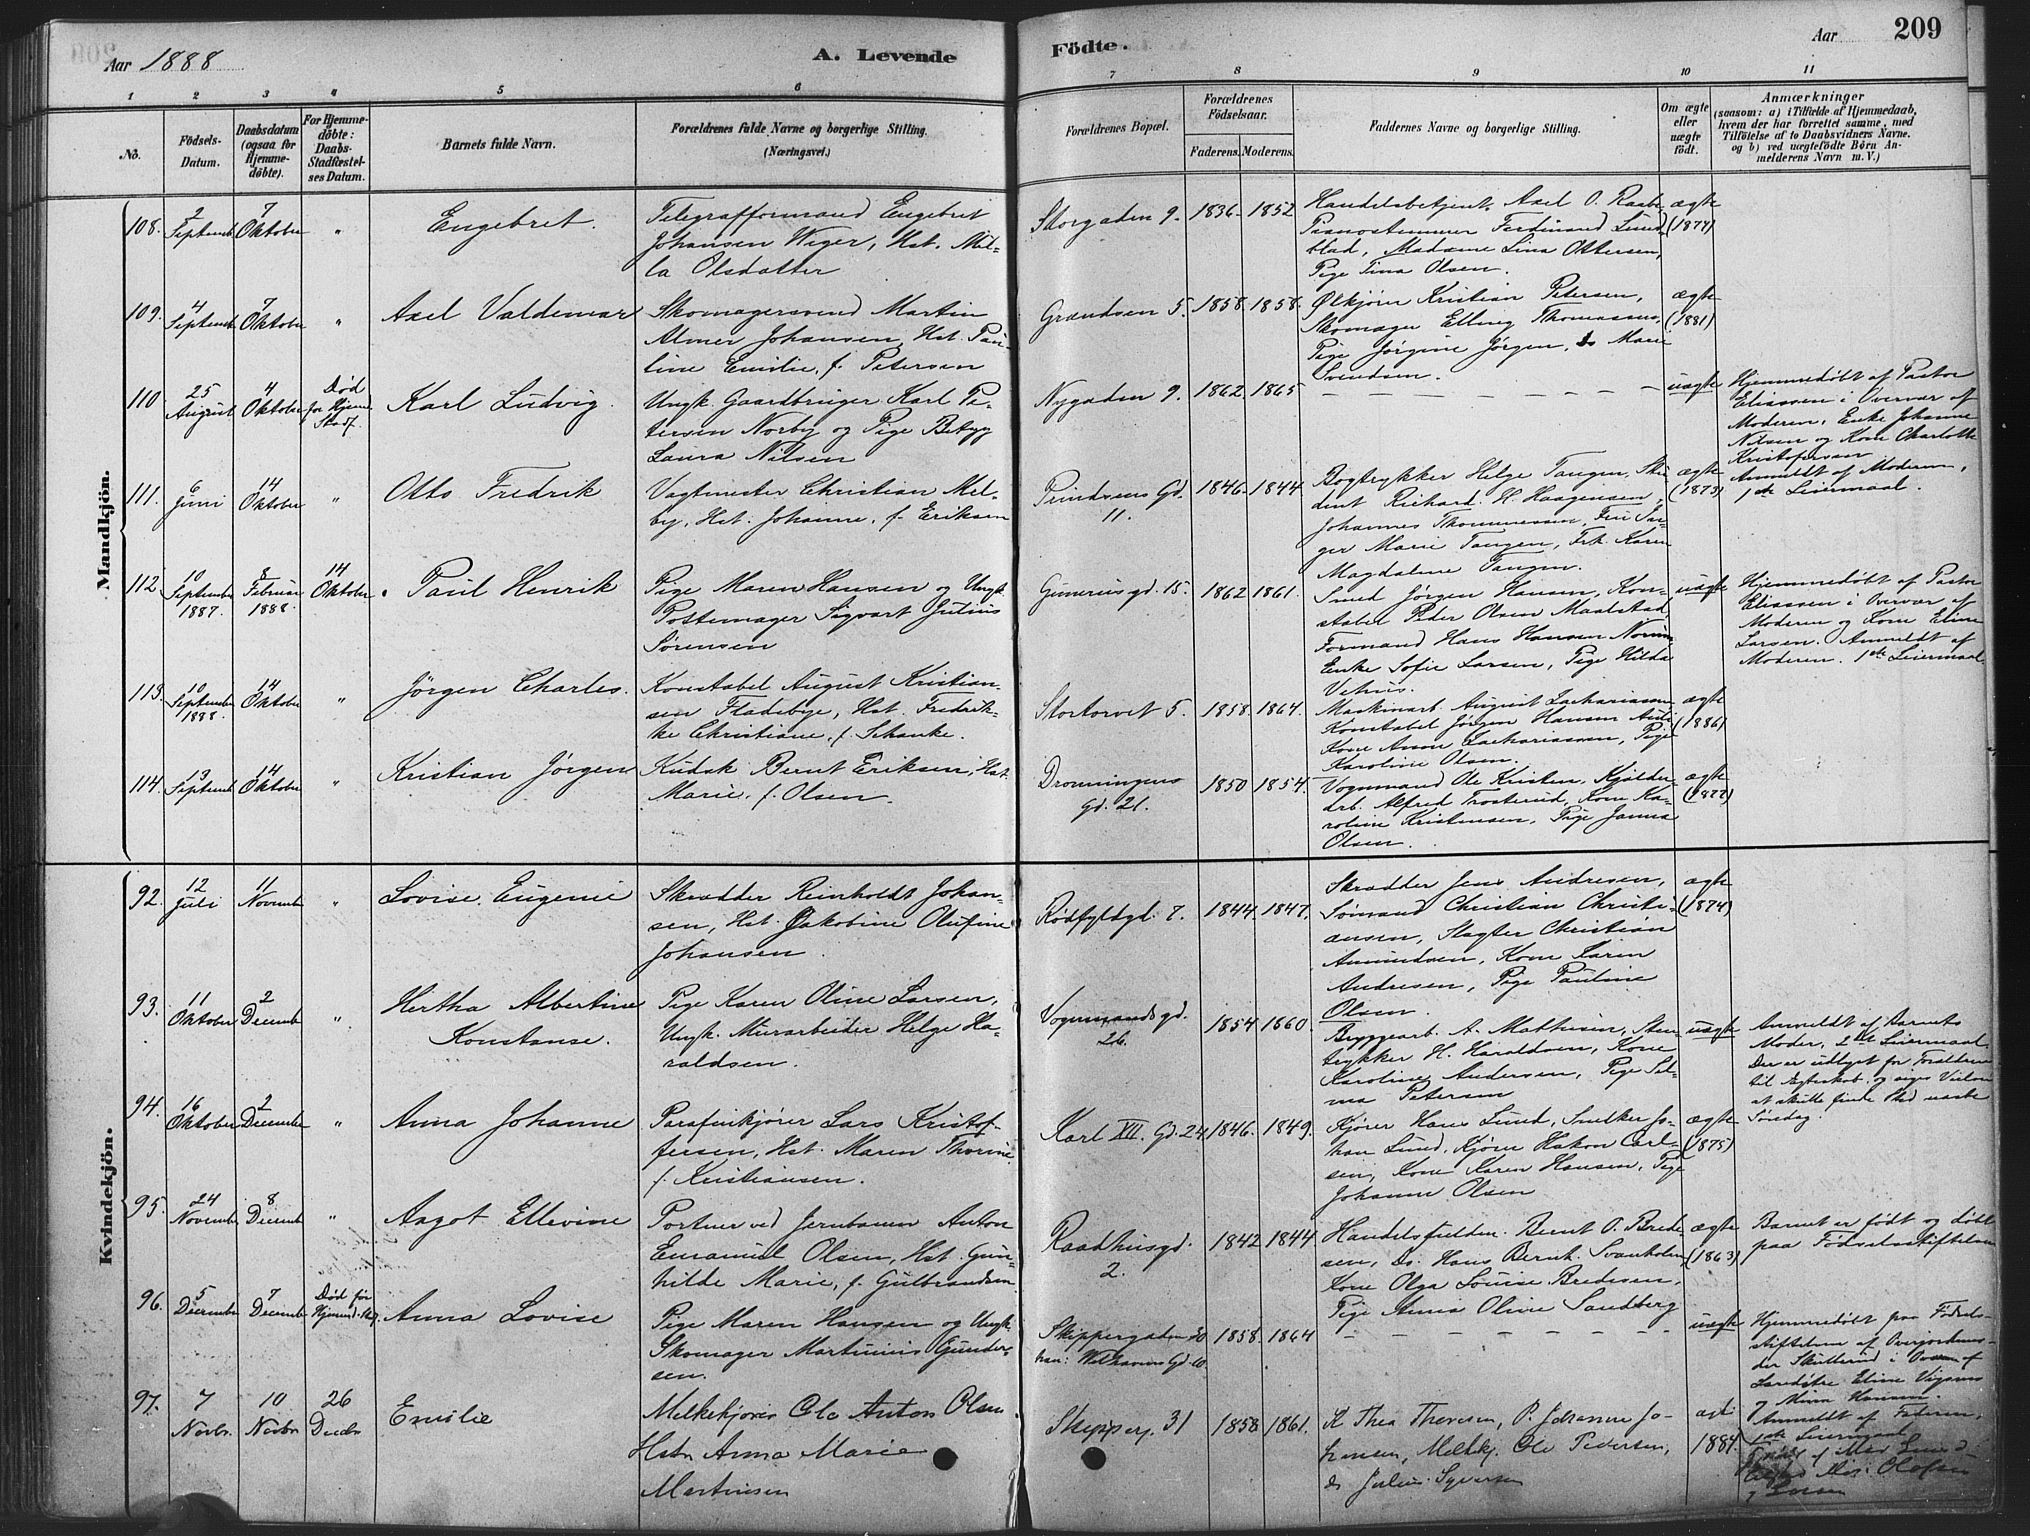 Aar 1888
A. Levende
Födte.
Aar
209
1 2 3 4 5 6 7 8 9 10 11
No.
Födsels-Datum.
Daabsdatum (ogsaa for Hjemmedøbte).
For Hjemmedøbte: Daabs-Stadfæstelses Datum.
Barnets fulde Navn.
Forældrenes fulde Navne og borgerlige Stilling.
(Næringsvei.)
Forældrenes Bopæl.
Forældrenes Födselsaar.
Faderens. Moderens.
Faddernes Navne og borgerlige Stilling.
Om ægte eller uægte födt.
Anmærkninger
(saasom: a) i Tilfælde af Hjemmedaab, hvem der har forrettet samme, med Tilföielse af to Daabsvidners Navne. og b) ved uægtefödte Börn Anmelderens Navn m. V.)
Mandkjön.
108. 2 Septemb 7 Oktober "
Engebret.
Telegrafformand Engebret
Johansen Wiger, Hst. Mil-
la Olsdatter
Storgaden 9. 1836. 1852
Handelsbetjent Axel O. Raabe
Pianostemmer Ferdinand Lund-
blad, Madame Lina Ottersen,
Pige Tina Olsen.
ægte (1877)
109. 4 Septemb 7 Oktober "
Axel Valdemar
Skomagersvend Martin
Almer Johansen, Hst. Pau-
line Emilie, f. Petersen
Grændsen 5. 1858. 1858.
Ølkjører Kristian Petersen,
Skomager Elling Thomassen,
Pige Jørgine Jørgen, Marie
Svendsen.
ægte (1881)
110 25 August 4 Oktober Død for Hjemme Stadf.
Karl Ludvig.
Ungk. Gaardbruger Karl Pe-
tersen Norby og Pige Betzy
Laura Nilsen
Nygaden 9. 1862. 1865
uægte
Hjemmedøbt af Pastor
Eliassen i Overvær af
Moderen, Enke Johanne
Nilsen og Kone Charlotte
Kristofersen
Anmeldt af Moderen,
1ste Leiermaal.
111. 6 Juni 14 Oktober "
Otto Fredrik
Vagtmester Christian Mel-
by, Hst. Johanne, f. Eriksen
Prindsens Gd. 11. 1846. 1844
Bogtrykker Helge Tangen, Stu-
dent Richard H. Haagensen,
Johannes Thommesen,
Marie Tangen, Frk. Karen
Magdalene Tangen.
ægte (1873)
112 10 September 1887. 8 Februar 1888. 14 Oktober.
Paul Henrik
Pige Maren Hansen og Ungk.
Postemager Sigvart Julius
Sørensen
Gunerius gd. 15. 1862 1861.
Smed Jørgen Hansen, Kon-
stabel Peder Olsen Maalstad,
Formand Hans Hansen
Enke Sofie Larsen, Pige Hilda
uægte
Hjemmedøbt af Pastor
Eliassen i Overvær af
Moderen og Kone Eline
Larsen. Anmeldt af
Moderen. 1ste Leiermaal.
113. 10 September 1888. 14 Oktober "
Jörgen Charles.
Konstabel August Kristian-
sen Fladebye, Hst. Fredrik-
ke Christiane, f. Schanke.
Stortorvet 5. 1858. 1864.
Maskinarb. August Zachariassen
Konstabel Jørgen Hansen
Kone Anne Zachariassen, Pige
Karoline Olsen.
ægte (1886)
114. 13 Septemb 14 Oktober "
Kristian Jørgen
Kudsk Bernt Eriksen, Hst.
Marie, f. Olsen.
Dronningens Gd. 21. 1850 1854.
Vognmand Ole Kristen,
Alfred Trosterud, Kone Ka-
roline Kristensen, Pige Janna
Olsen.
ægte (1877)
Kvindekjön.
92. 12 Juli 11 Novemb "
Lovise Eugenie
Skrædder Reinholdt Johan-
sen, Hst. Jakobine Olufine
Johansen.
Rødfyldgd. 7. 1844 1847.
Skrædder Jens Andresen,
Sømand Christian Christi-
ansen, Slagter Christian
Amundsen, Kone Karen
Andresen, Pige Pauline
Olsen.
ægte (1874)
93. 11 Oktober 2 Decemb "
Hertha Albertine
Konstanse.
Pige Karen Oline Larsen,
Ungk. Murarbeider Helge Ha-
raldsen.
Vognmandsgd. 26. 1854 1860.
Bryggearb. A. Mathisen, Sten-
trykker H. Haraldsen, Kone
Karoline Andersen, Pige Sel-
ma Petersen
uægte
Anmeldt af Barnets
Moder, 2det Leiermaal.
Der er udlyst for Forældrene
til Egteskab og siges Vielsen
at skulle finde Sted næste
Søndag.
94. 16 Oktober 2 Decembe "
Anna Johanne
Parafinkjører Lars Kristof-
fersen, Hst. Maren Thorine
f. Kristiansen.
Karl XII. Gd. 24 1846. 1849.
Kjører Hans Lund, Snekker Jo-
han Lund, Kjører Hakon Carl-
sen, Kone Karen Hansen, Pige
Johanne Olsen
ægte (1875)
95. 24 Novembe 8 Decemb "
Aagot Ellevine
Portner ved Jernbanen Anton
Emanuel Olsen, Hst. Gun-
hilde Marie, f. Gulbrandsen
Raadhusgd. 2. 1842 1844
Handelsfuldm. Bernt O. Brede-
sen, Do. Hans Bernh. Svanholm,
Kone Olga Louise Bredesen,
Pige Anna Oline Sandberg
ægte (1863)
Barnet er født og døbt
paa Fødselsstiftelsen
96. 5 Decembe 7 Decembe Død før Hjemmd.
Anna Lovise
Pige Maren Hansen og Ungk.
Skomager Martinius Gunder-
sen.
Skippergaden 30 1858. 1864
uægte
Hjemmedøbt paa Fødsels-
stiftelsen af
i Overvær af
Eline
Hansen.
Anmeldt af Faderen,
1ste Leiermaal
97. 7 Novbr. 10 Novbr 26 Decbr
Emilie
Melkekjører Ole Anton Olsen
Hstr Anna Marie
Martinsen
Skipperg. 31 1858 1861.
K Thea Thoresen, P. Johanne Jo-
hansen, Melkkj. Ole Pedersen,
do Julius Syversen
1884.